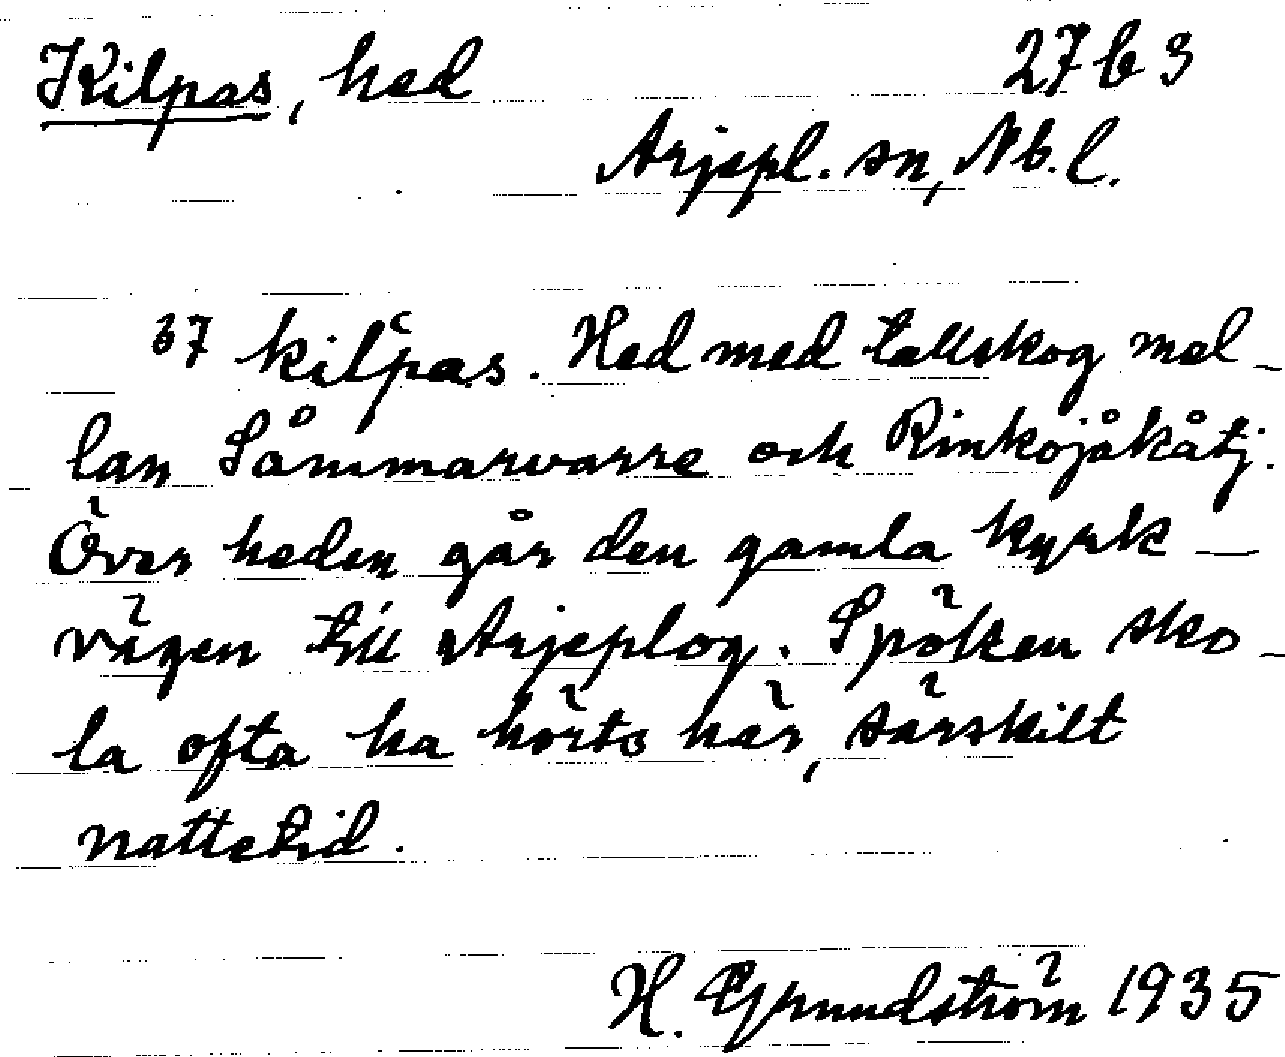 Kilpas, hed 27 b 3
Arjepl. sn, Nb. l.
37 kilʻpas. Hed med tallskog mel-
lan Såmmarvarre och Rinkojåkåtj.
Över heden går den gamla kyrk-
vägen till Arjeplog. Spöken sko-
la ofta ha hörts här, särskilt
nattetid.
H. Grundström 1935